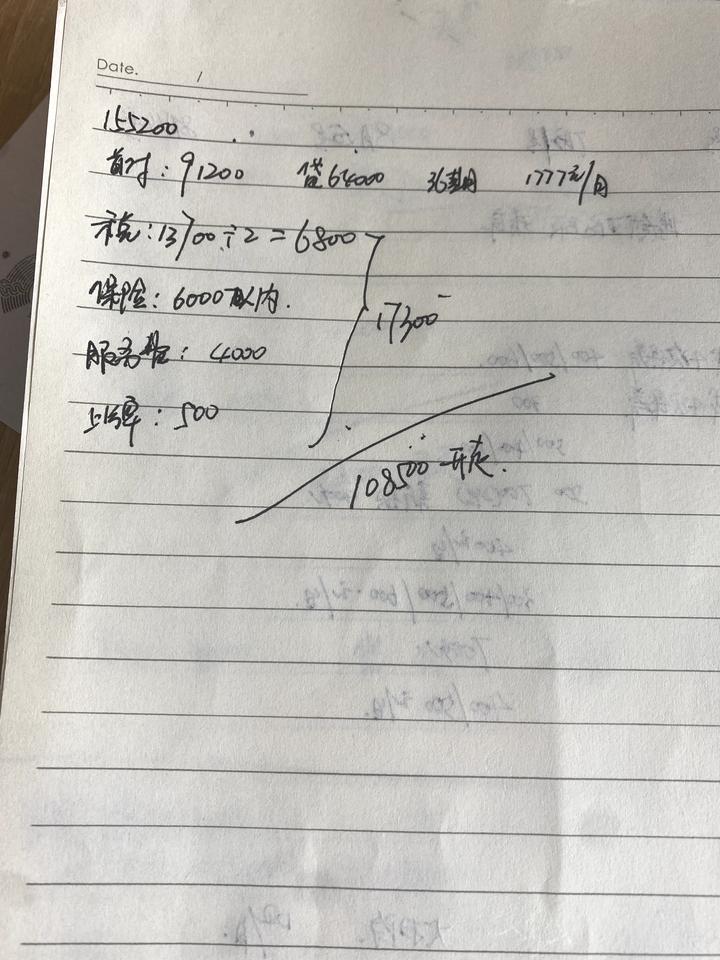 Date. /
155200
首付：91200 贷64000 36期 1777元/月
税：13700÷2=6800
保险：6000以内.
服务费：4000
17300
上牌：500
108500 开走.